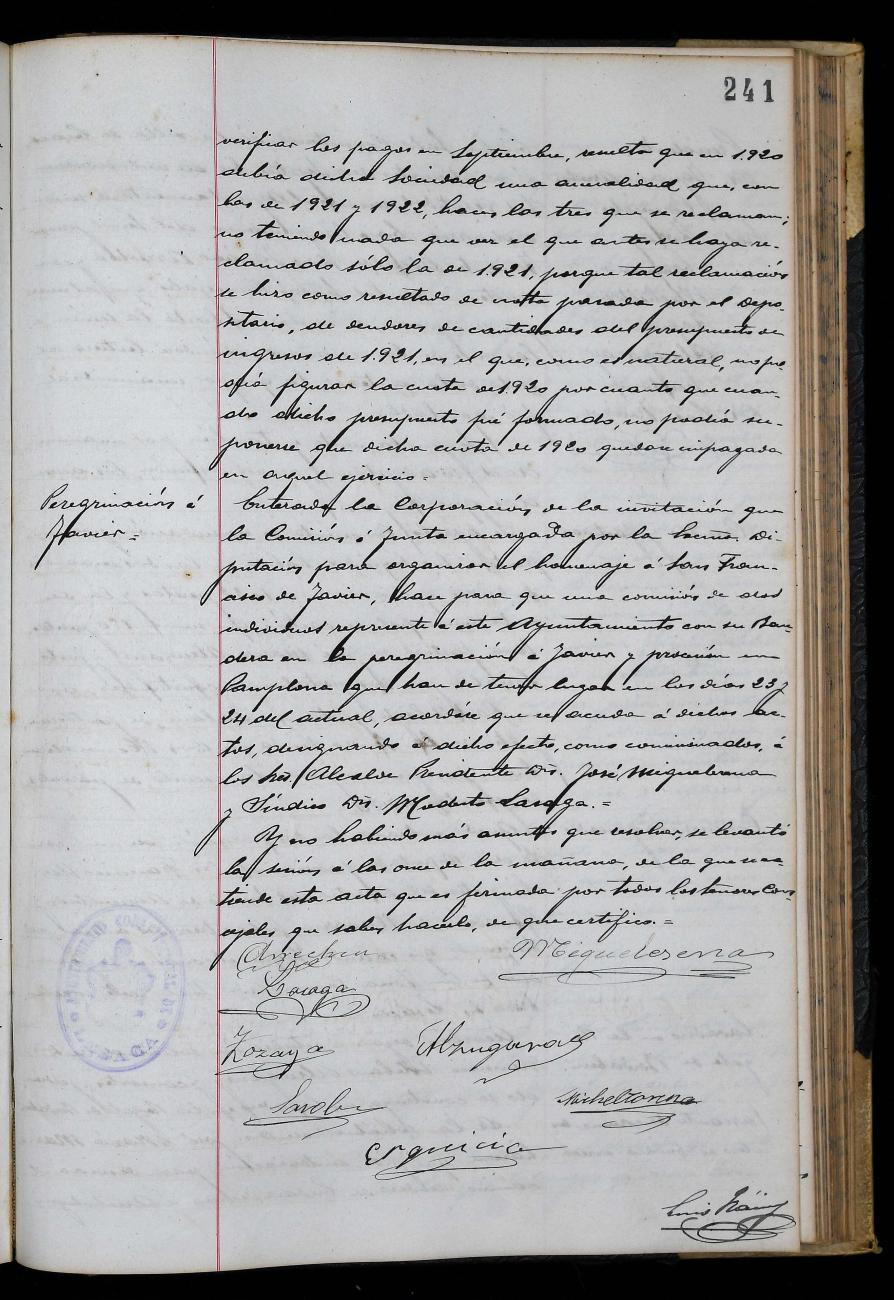 241
verificar los pagos en Septiembre, resulta que en 1.920
debía dicha Sociedad una anualidad que, con
las de 1921 y 1922, hacen las tres que se reclaman;
no teniendo nada que ver el que antes se haya re-
clamado sólo la de 1.921, porque tal reclamación
se hizo como resultado de nota pasada por el Depo-
sitario, de deudores de cantidades del presupuesto de
ingresos de 1.921, en el que, como es natural, no po-
día figurar la cuota de 1920 por cuanto que cuan-
do dicho presupuesto fué formado, no podía su-
ponerse que dicha cuota de 1920 quedase impagada
en aquel ejercicio=
Peregrinación á
Javier=
Enterada la Corporación de la invitación que
la Comisión ó Junta encargada por la Excma. Di-
putación para organizar el homenaje á San Fran-
cisco de Javier, hace para que una comisión de dos
individuos represente á este Ayuntamiento con su Ban-
dera en la peregrinación á Javier y procesión en
Pamplona que han de tener lugar en los días 23 y
24 del actual, acordóse que se acuda á dichos ac-
tos, designando á dicho efecto, como comisionados, á
los Sres. Alcalde Presidente Dn. José Miguelerena
y Síndico Dn. Modesto Lasaga.=
Y no habiendo más asuntos que resolver, se levantó
la sesión á las once de la mañana, de la que se ex-
tiende esta acta que es firmada por todos los señores Con-
cejales que saben hacerlo, de que certifico.=
Arrechea
Miguelerena
Lasaga
Zozaya
Alzugaray
Sarobe
Micheltorena
Eguicia
Luis